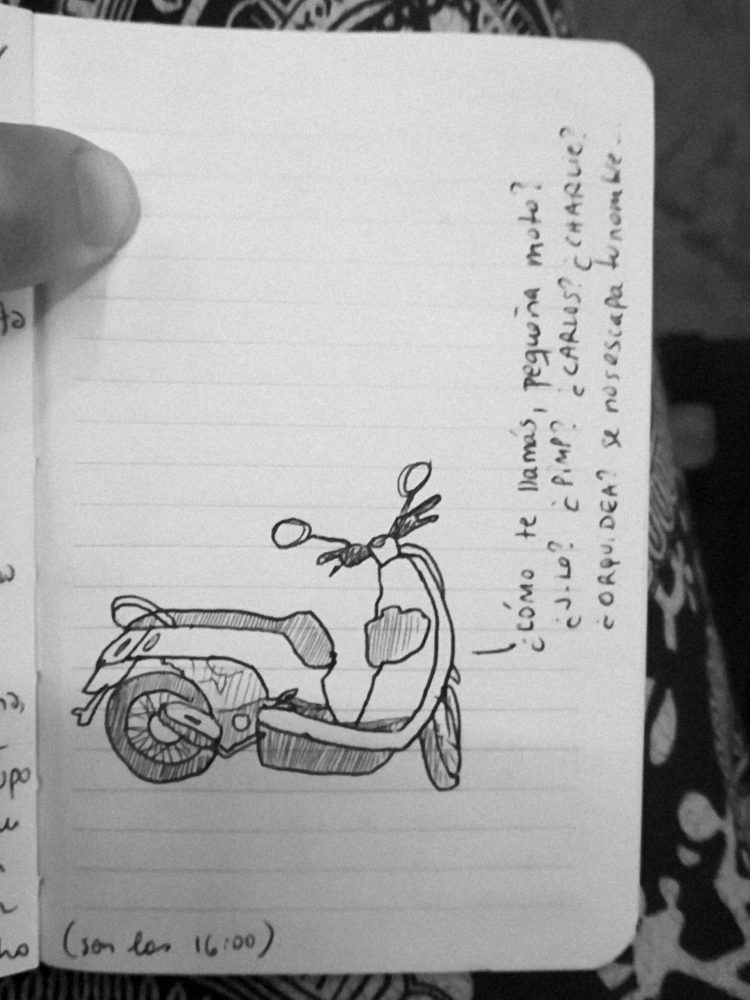 ¿CÓMO te llamás, pequeña moto?
¿J-LO? ¿PIMP? ¿CARLOS? ¿CHARLIE?
¿ORQUIDEA? se nos escapa tu nombre.
(son las 16:00)